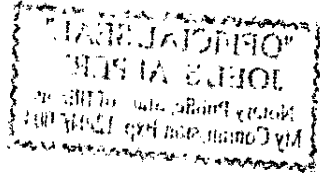 "OFFICIAL SEAL"
JOEL S. ALPER
Notary Public, State of Illinois
My Commission Exp.